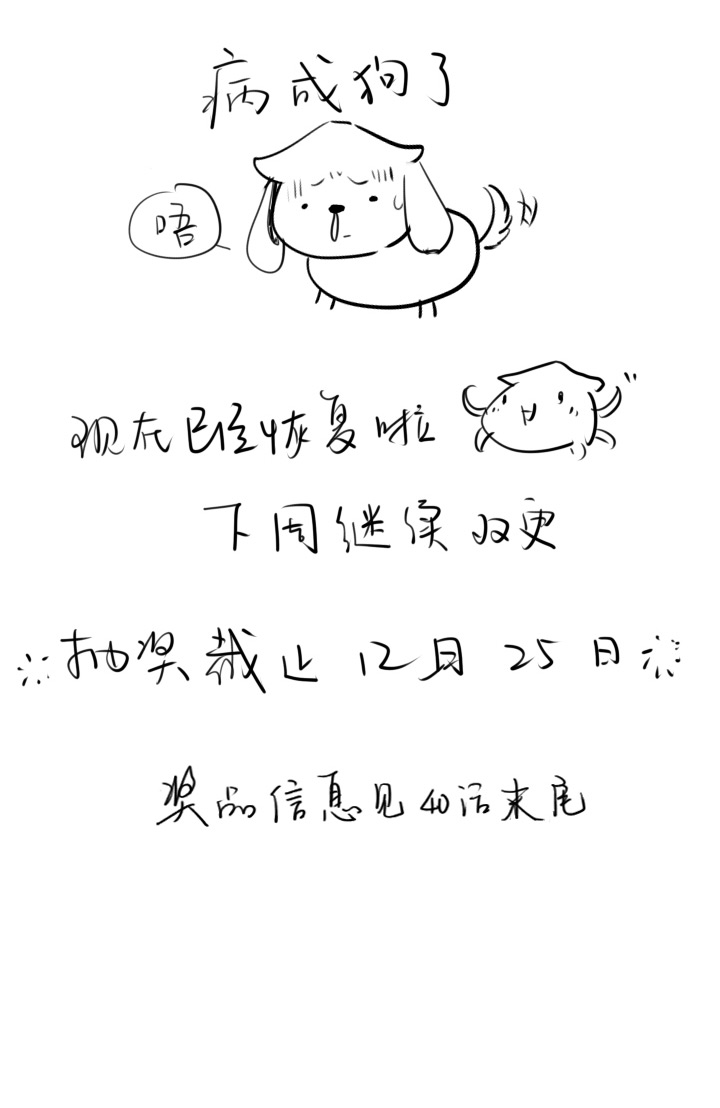 病成狗了
唔
现在已经恢复啦
下周继续双更
抽奖截止 12月 25 日
奖品信息见40话末尾